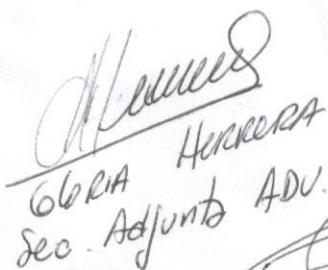 GLORIA HERRERA
Sec. Adjunta ADU.